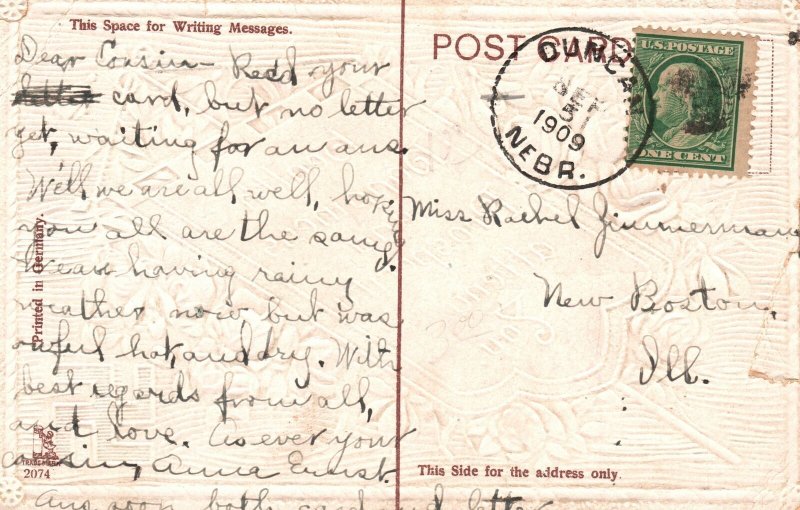 This Space for Writing Messages.
Dear Cousin Recd your
card, but no letter
yet, waiting for an ans.
Well we are all well, hoping
you all are the same.
We are having rainy
weather now but was
awful hot, and dry. With
best regards from all,
and love. As ever your
cousin, Anna Ernst.
Ans soon both card and letter
Printed in Germany.
2074
POST CARD
DUNCAN
1909
NEBR.
U.S. POSTAGE
ONE CENT
Miss Rachel Zimmerman
New Boston,
Ill.
This Side for the address only.